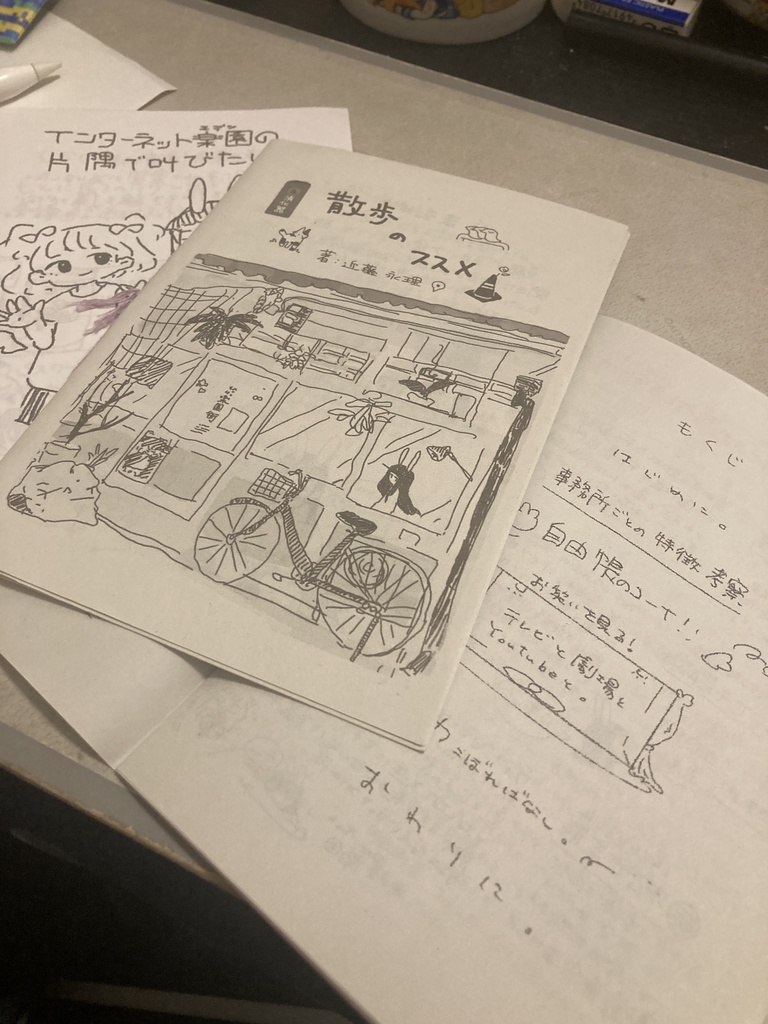 インターネット楽園の
エデン
片隅で叫びたい
散歩
の
ススメ
著:近藤永理
もくじ
はじめに。
事務所ごとの特徴考察
自由帳のコーナー!!
お笑いを見る!
テレビと劇場と
Youtubeと。
こぼればなし。
おわりに。